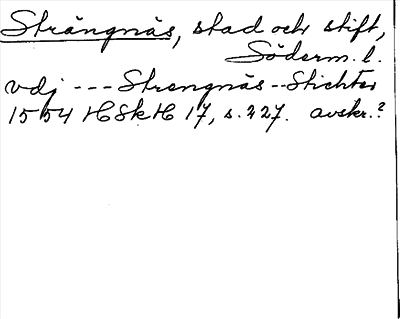 Strängnäs, stad och stift,
Söderm. l.
vdj --- Strengnäs -- Stichter
1554 HSkH 17, s. 227. avskr.?